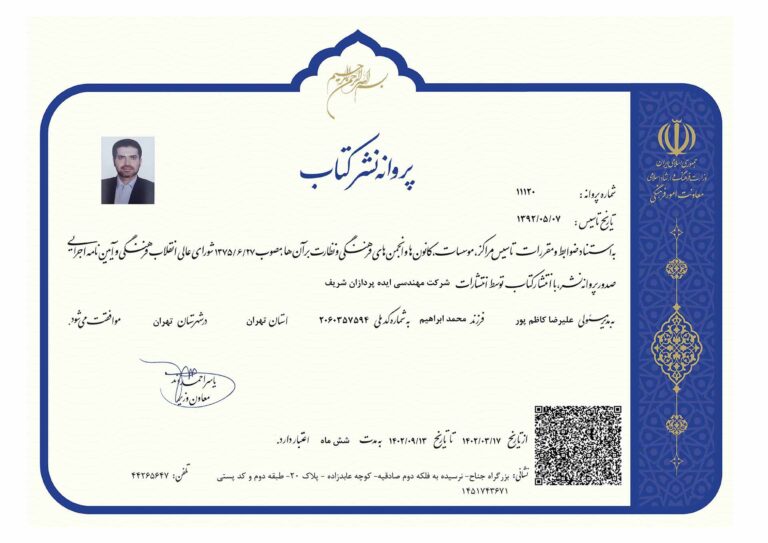 بسم الله الرحمن الرحیم
جمهوری اسلامی ایران
وزارت فرهنگ و ارشاد اسلامی
معاونت امور فرهنگی
پروانه نشر کتاب
شماره پروانه : ۱۱۱۲۰
تاریخ تاسیس : ۱۳۹۲/۰۵/۰۷
به استناد ضوابط و مقررات تاسیس مراکز، موسسات، کانون ها و انجمن های فرهنگی و نظارت بر آن ها، مصوب ۱۳۷۵/۶/۲۷ شورای عالی انقلاب فرهنگی و آیین نامه اجرایی
صدور پروانه نشر، با انتشار کتاب توسط انتشارات شرکت مهندسی ایده پردازان شریف
به مدیر مسئولی علیرضا کاظم پور فرزند محمد ابراهیم به شماره کد ملی ۲۰۶۰۳۵۷۵۹۴ استان تهران در شهرستان تهران موافقت می شود.
یاسر احمدوند
معاون وزیر
از تاریخ ۱۴۰۲/۰۳/۱۷ تا تاریخ ۱۴۰۲/۰۹/۱۳ به مدت شش ماه اعتبار دارد.
نشانی: بزرگراه جناح- نرسیده به فلکه دوم صادقیه- کوچه عابدزاده - پلاک ۲۰- طبقه دوم و کد پستی تلفن: ۴۴۲۶۵۶۴۷
۱۴۵۱۷۴۳۶۷۱